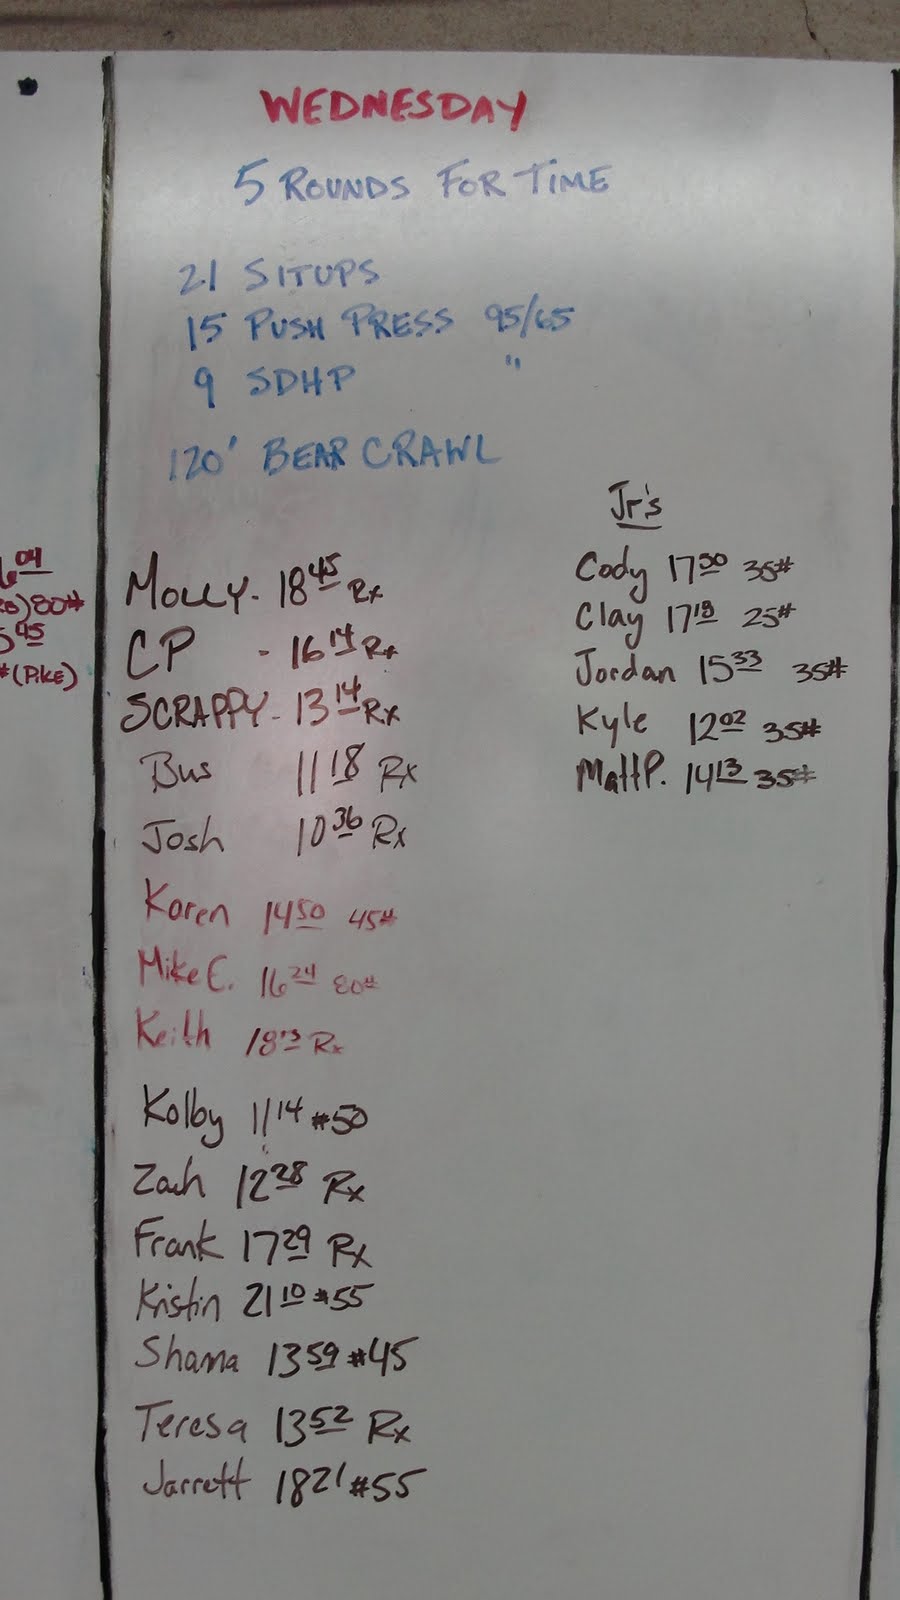 WEDNESDAY
5 ROUNDS FOR TIME
21 SITUPS
15 PUSH PRESS 95/65
9 SDHP "
120' BEAR CRAWL
MOLLY - 18 45 Rx
CP - 16 14 Rx
SCRAPPY - 13 14 Rx
Bus 11 18 Rx
Josh 10 36 Rx
Karen 14 50 45#
Mike E. 16 24 80#
Keith 18 13 Rx
Kolby 11 14 #50
Zach 12 28 Rx
Frank 17 29 Rx
Kristin 21 10 #55
Shana 13 59 #45
Teresa 13 52 Rx
Jarrett 18 21 #55
Jr's
Cody 17 50 35#
Clay 17 18 25#
Jordan 15 33 35#
Kyle 12 02 35#
Matt P. 14 13 35#
04
80#
45
# (PIKE)